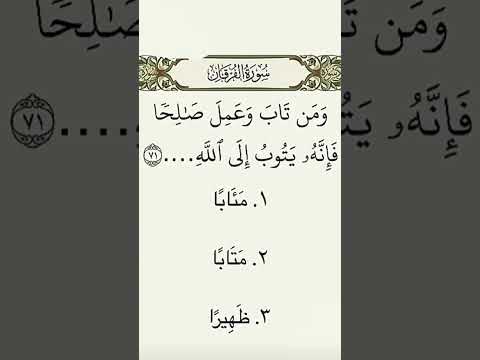 سُورَةُ الفُرْقَانِ
وَمَن تَابَ وَعَمِلَ صَـٰلِحًا
فَإِنَّهُۥ يَتُوبُ إِلَى ٱللَّهِ.... ٧١
١. مَـَٔابًا
٢. مَتَابًا
٣. ظَهِيرًا